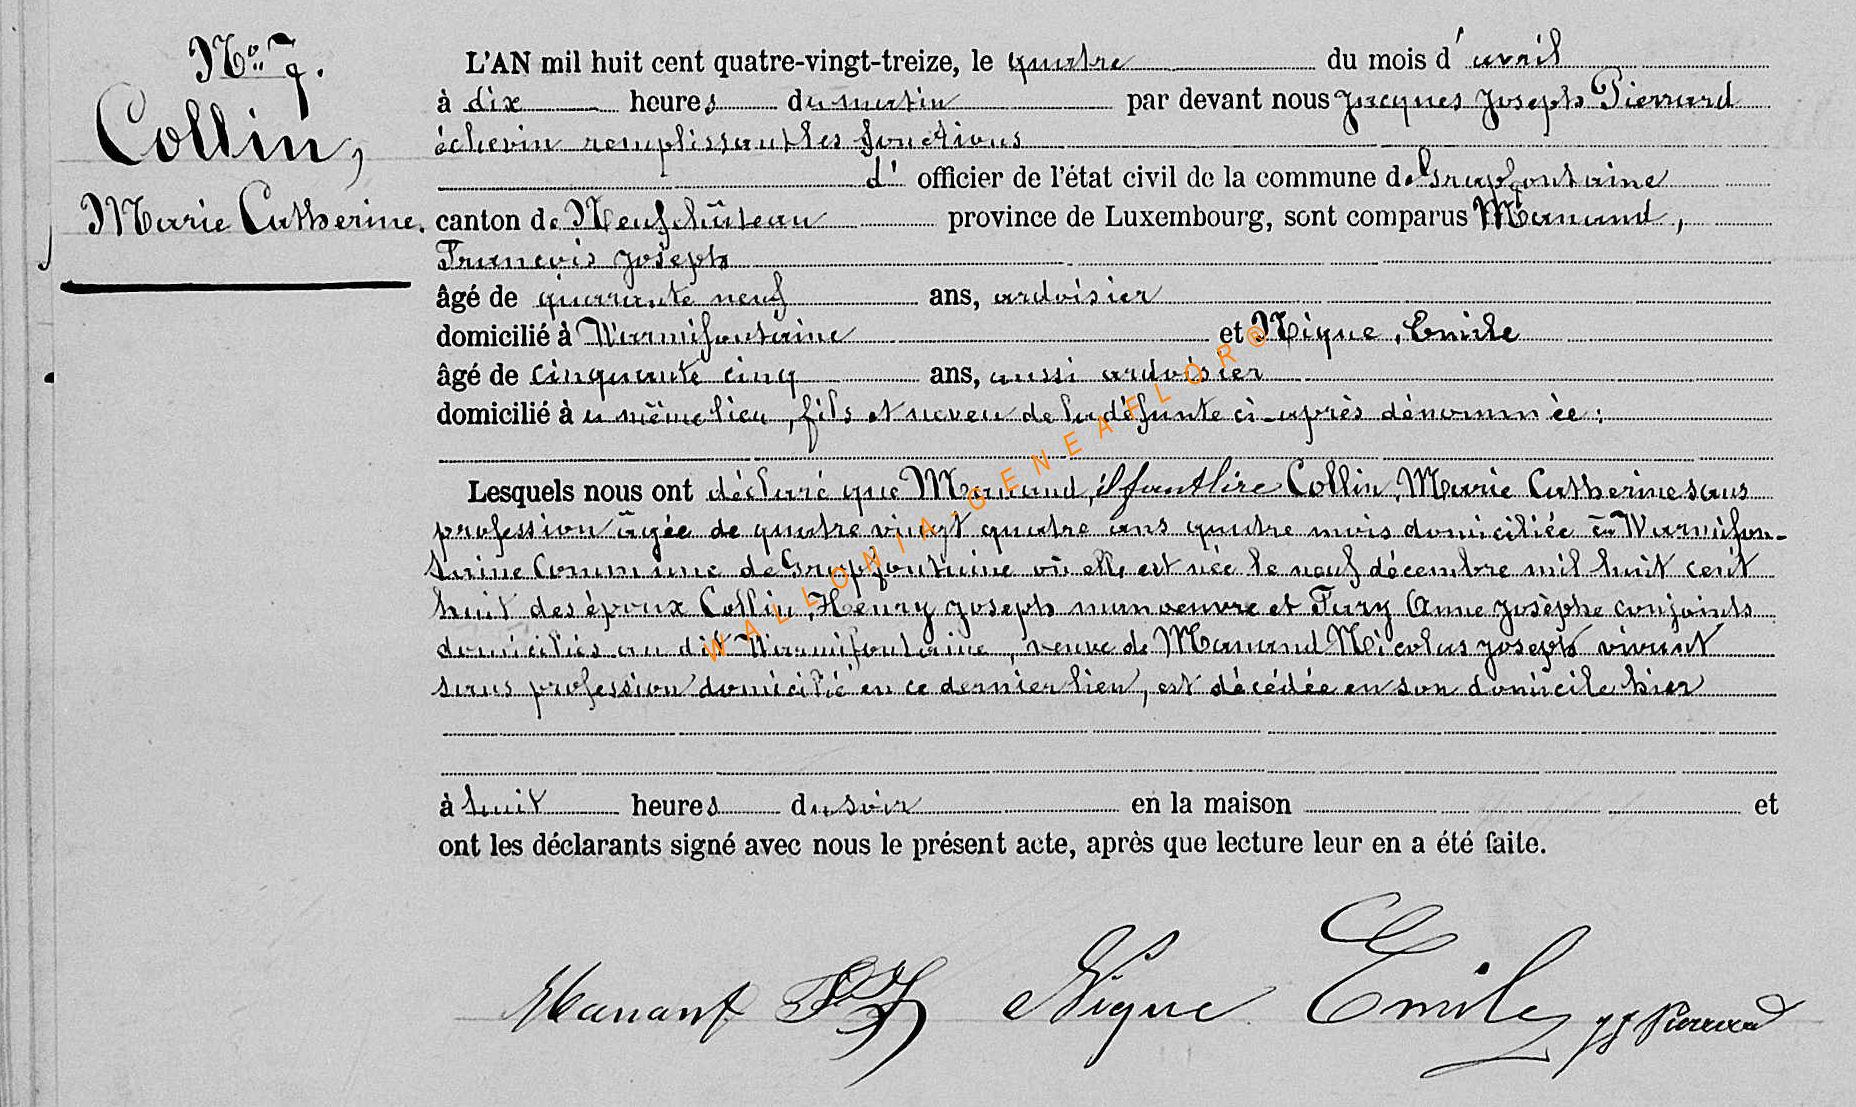 No 7.
Collin,
Marie Catherine.
L'AN mil huit cent quatre-vingt-treize, le quatre du mois d'avril
à dix heures du matin par devant nous Jacques Joseph Pierrard
échevin remplissant les fonctions
d' officier de l'état civil de la commune de Grapfontaine
canton de Neufchâteau province de Luxembourg, sont comparus Manand,
François Joseph
âgé de quarante neuf ans, ardoisier
domicilié à Warmifontaine et Nique, Emile
âgé de cinquante cinq ans, aussi ardoisier
domicilié à u même lieu, fils et neveu de la défunte ci-après dénommée:
Lesquels nous ont déclaré que Manand, il faut lire Collin, Marie Catherine sans
profession âgée de quatre vingt quatre ans quatre mois domiciliée à Warmifon-
taine Commune de Grapfontaine où elle est née le neuf décembre mil huit cent
huit des époux Collin, Henry Joseph manoeuvre et Fury Anne Josèphe conjoints
domiciliés au dit Warmifontaine, veuve de Manand Nicolas Joseph vivant
sans profession domicilié en ce dernier lieu, est décédée en son domicile hier
à huit heures du soir en la maison et
ont les déclarants signé avec nous le présent acte, après que lecture leur en a été faite.
Manant F J Nique Emile JJ Pierrard
WALLONIA-GENEAFLOR®